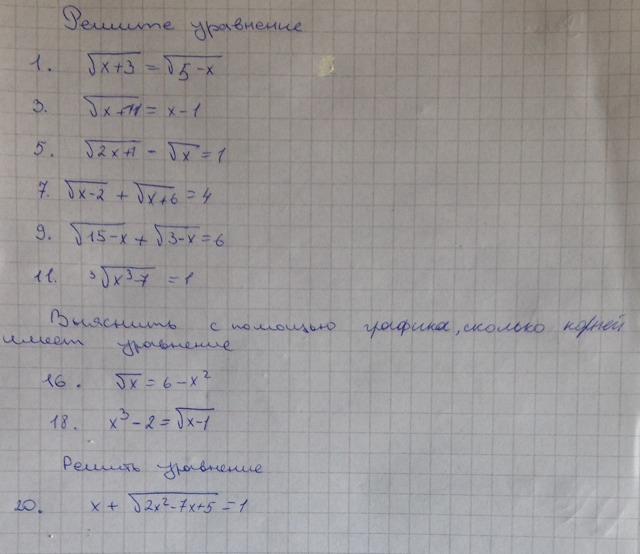 Решите уравнение
1. √x+3 = √5-x
3. √x+11 = x-1
5. √2x+1 - √x = 1
7. √x-2 + √x+6 = 4
9. √15-x + √3-x = 6
11. ³√x³-7 = 1
Выяснить с помощью графика, сколько корней
имеет уравнение
16. √x = 6-x²
18. x³-2 = √x-1
Решить уравнение
20. x + √2x²-7x+5 = 1